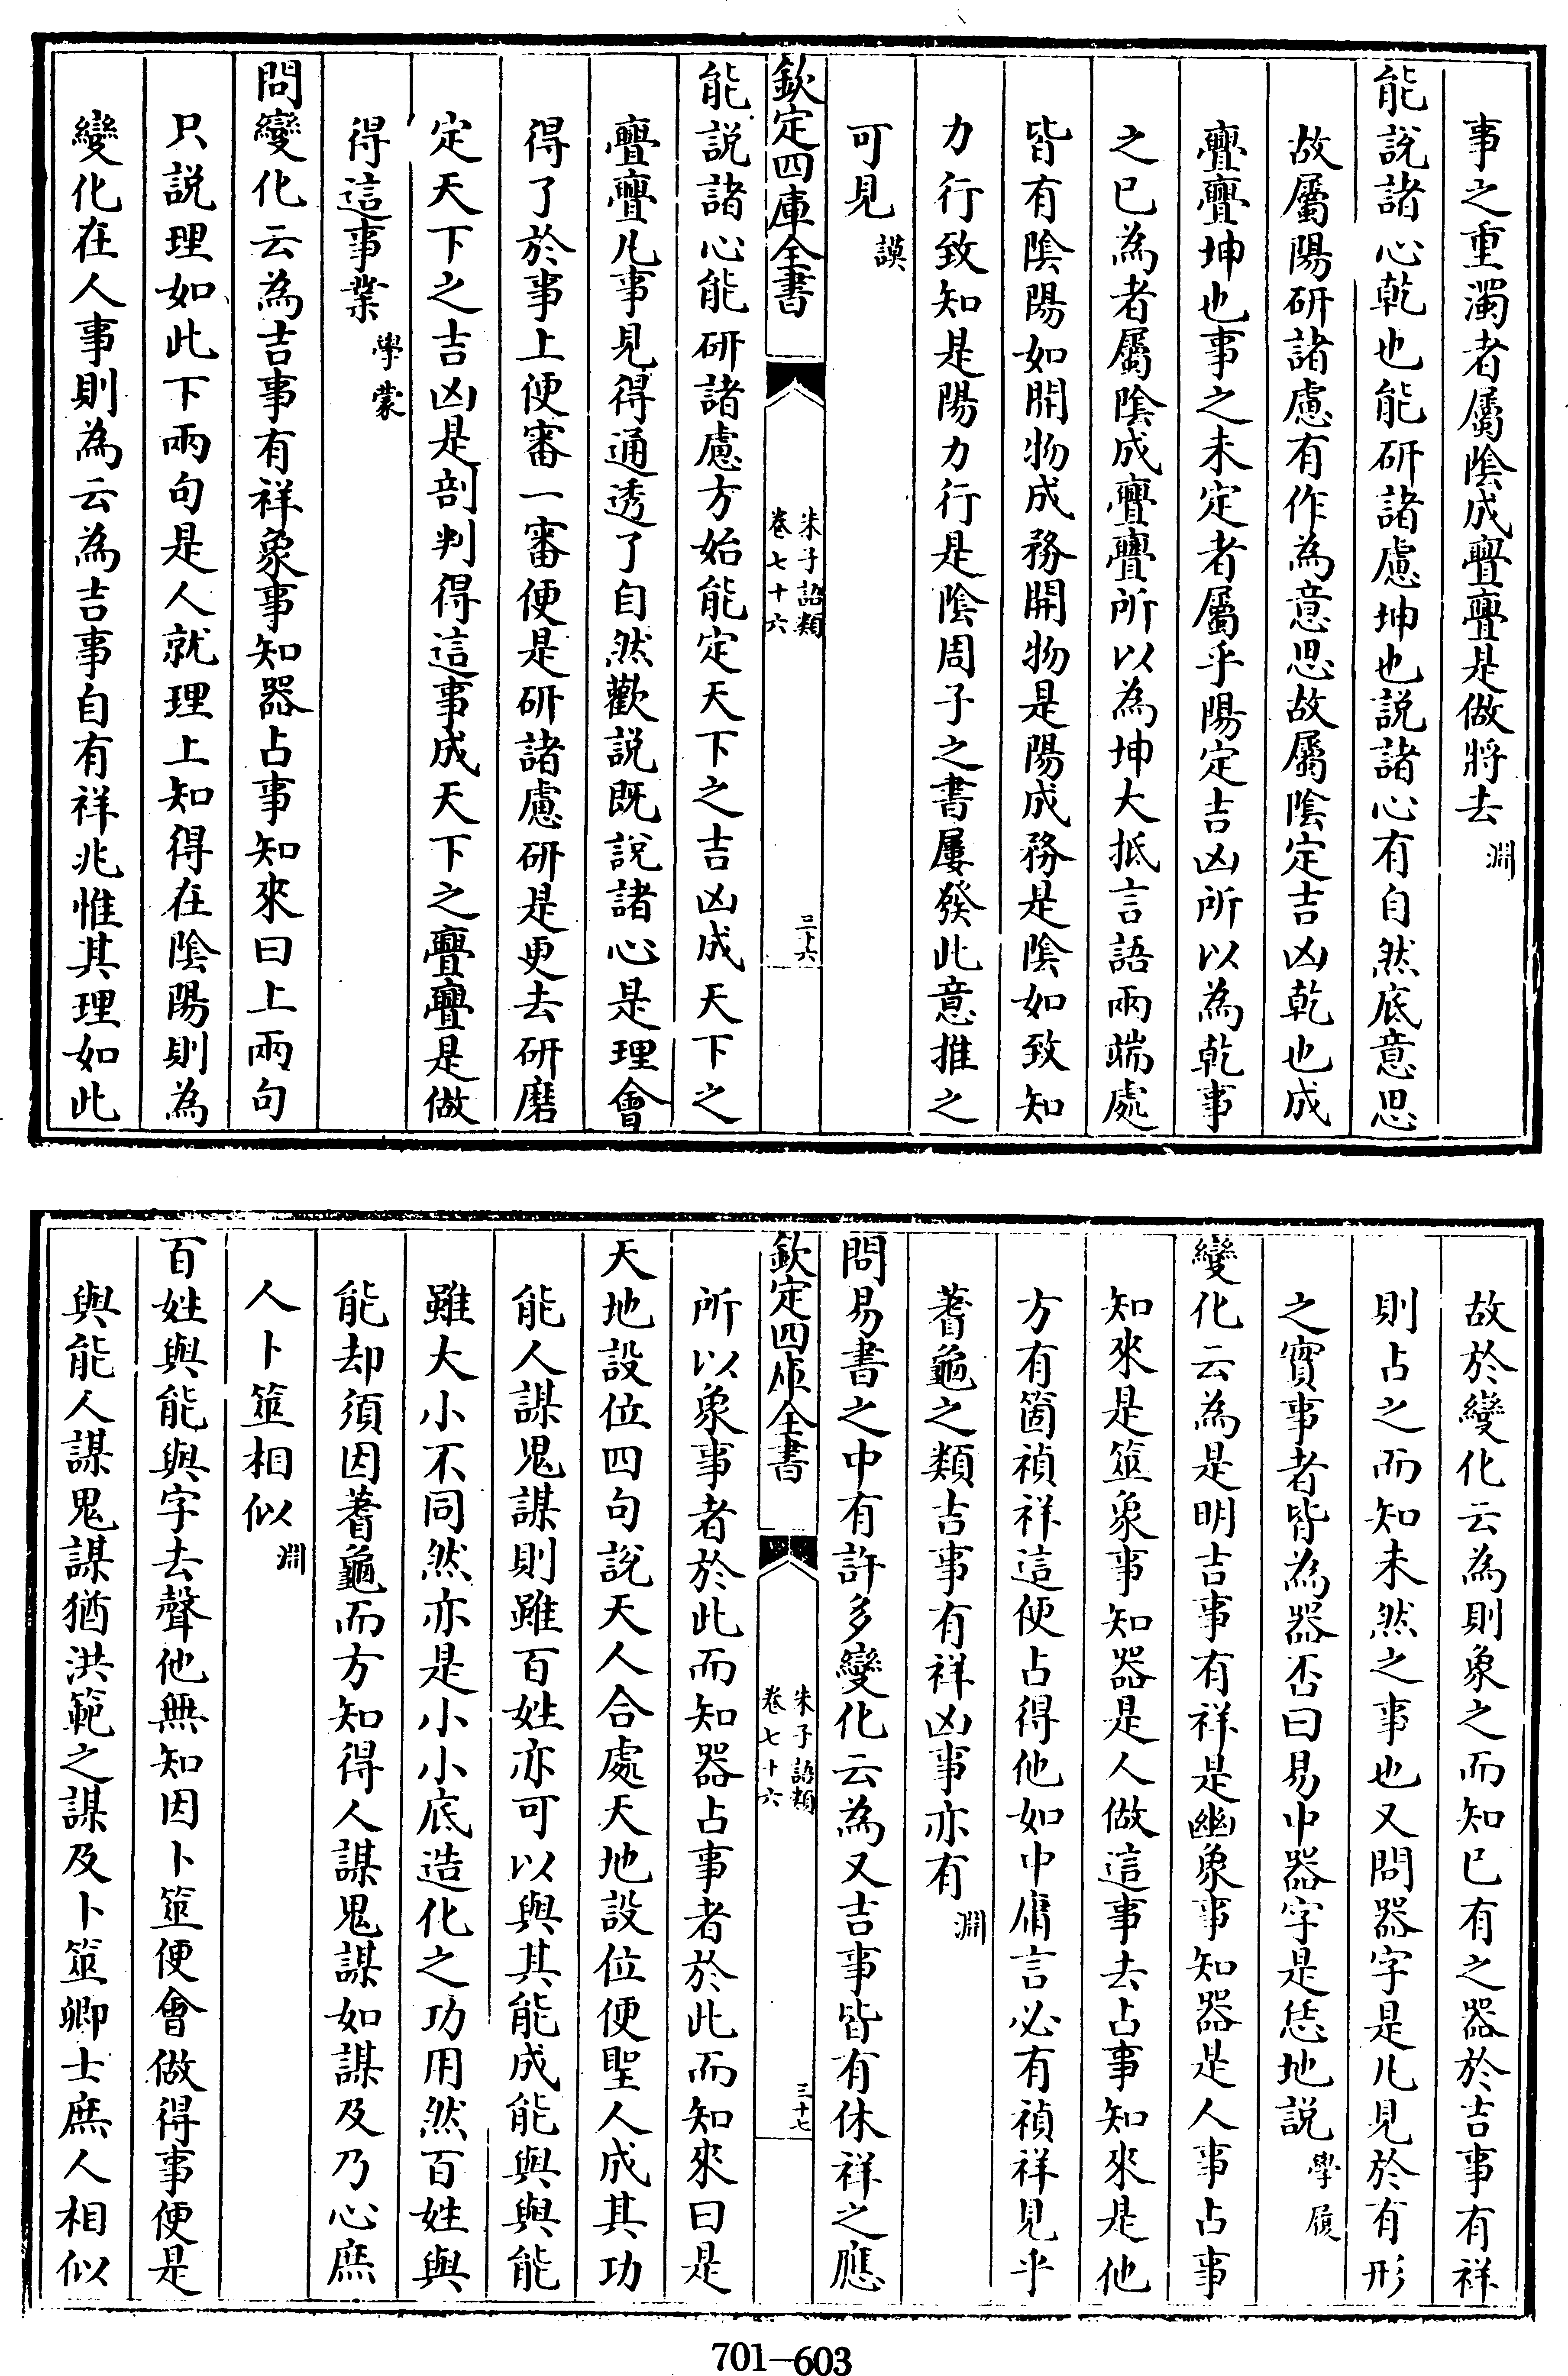 事之重濁者屬陰成亹亹是做將去淵
能說諸心乾也能研諸慮坤也説諸心有自然底意思
故屬陽研諸慮有作為意思故屬陰定吉凶乾也成
亹亹坤也事之未定者屬乎陽定吉凶所以為乾事
之已為者屬陰成亹亹所以為坤大抵言語兩端處
皆有陰陽如開物成務開物是陽成務是陰如致知
力行致知是陽力行是陰周子之書屢發此意推之
可見謨
欽定四庫全書
朱子語類
卷七十六
三十六
能説諸心能研諸慮方始能定天下之吉凶成天下之
亹亹凡事見得通透了自然歡説既説諸心是理會
得了於事上便審一審便是研諸慮研是更去研磨
定天下之吉凶是剖判得這事成天下之亹亹是做
得這事業學蒙
問變化云為吉事有祥象事知器占事知來曰上兩句
只説理如此下兩句是人就理上知得在陰陽則為
變化在人事則為云為吉事自有祥兆惟其理如此
故於變化云為則象之而知已有之器於吉事有祥
則占之而知未然之事也又問器字是凡見於有形
之實事者皆為器否曰易中器字是恁地説學履
變化云為是明吉事有祥是幽象事知器是人事占事
知來是筮象事知器是人做這事去占事知來是他
方有箇禎祥這便占得他如中庸言必有禎祥見乎
蓍龜之類吉事有祥凶事亦有淵
問易書之中有許多變化云為又吉事皆有休祥之應
欽定四庫全書
朱子語類
卷七十六
三十七
所以象事者於此而知器占事者於此而知來曰是
天地設位四句說天人合處天地設位便聖人成其功
能人謀鬼謀則雖百姓亦可以與其能成能與與能
雖大小不同然亦是小小底造化之功用然百姓與
能却須因蓍龜而方知得人謀鬼謀如謀及乃心庶
人卜筮相似淵
百姓與能與字去聲他無知因卜筮便會做得事便是
與能人謀鬼謀猶洪範之謀及卜筮卿士庶人相似
701—603